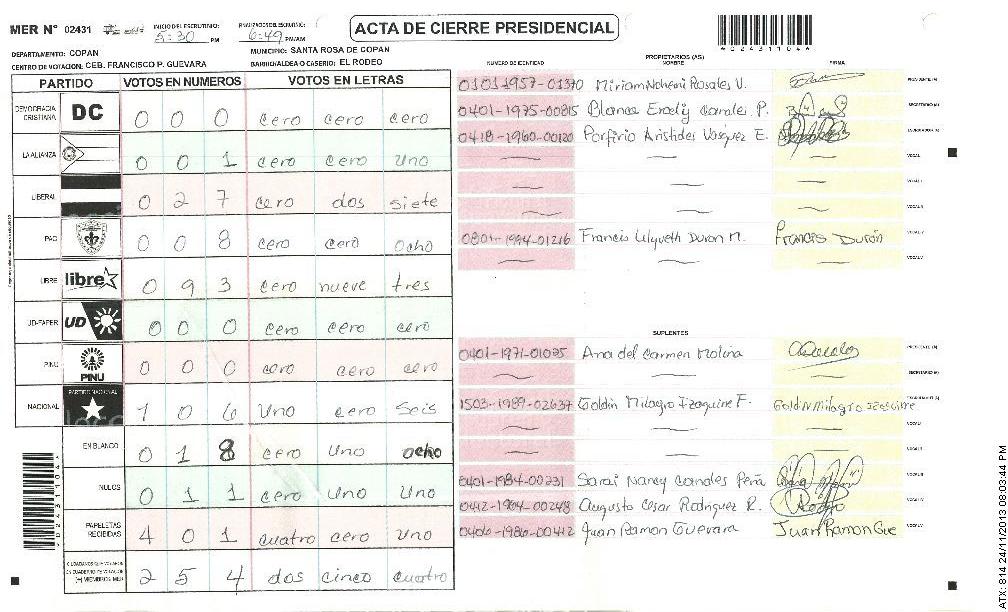 MER Nº 02431 INICIO DEL ESCRUTINIO: 5:30 PM 6:49 PM/AM ACTA DE CIERRE PRESIDENCIAL
DEPARTAMENTO: COPAN MUNICIPIO: SANTA ROSA DE COPAN
CENTRO DE VOTACION: CEB. FRANCISCO P. GUEVARA BARRIO/ALDEA O CASERIO: EL RODEO
PARTIDO VOTOS EN NUMEROS VOTOS EN LETRAS
DEMOCRACIA CRISTIANA DC 0 0 0 cero cero cero
LA ALIANZA 0 0 1 cero cero Uno
LIBERAL 0 2 7 cero dos siete
PAC 0 0 8 cero cero ocho
LIBRE libre 0 9 3 cero nueve tres
UD-FAPER UD 0 0 0 cero cero cero
PINU PINU 0 0 0 cero cero cero
NACIONAL PARTIDO NACIONAL 1 0 6 Uno cero seis
EN BLANCO 0 1 8 cero Uno ocho
NULOS 0 1 1 cero Uno Uno
PAPELETAS RECIBIDAS 4 0 1 cuatro cero Uno
2 5 4 dos cinco cuatro
PROPIETARIOS (AS)
NUMERO DE IDENTIDAD NOMBRE FIRMA
0101-1957-01370 Miriam Nohemi Rosales V. PRESIDENTE (A)
0401-1975-00815 Blanca Canales P. SECRETARIO (A)
0418-1960-00120 Porfirio Aristides Vasquez E.
VOCAL I
VOCAL II
0801-1994-01216 Francis Duron M. Francis Durón
SUPLENTES
0401-1971-01025 Ana del Carmen Molina PRESIDENTE (A)
SECRETARIO (A)
1503-1989-02637 Goldin Milagro Izaguirre F. Goldin Milagro Izaguirre
0401-1984-00231 Sarai Nancy Canales Peña
0412-1964-00248 Augusto Cesar Rodriguez R.
0406-1986-00442 Juan Ramon Guevara Juan Ramon Gue
4024311044
ATX: 814 24/11/2013 08:03:44 PM